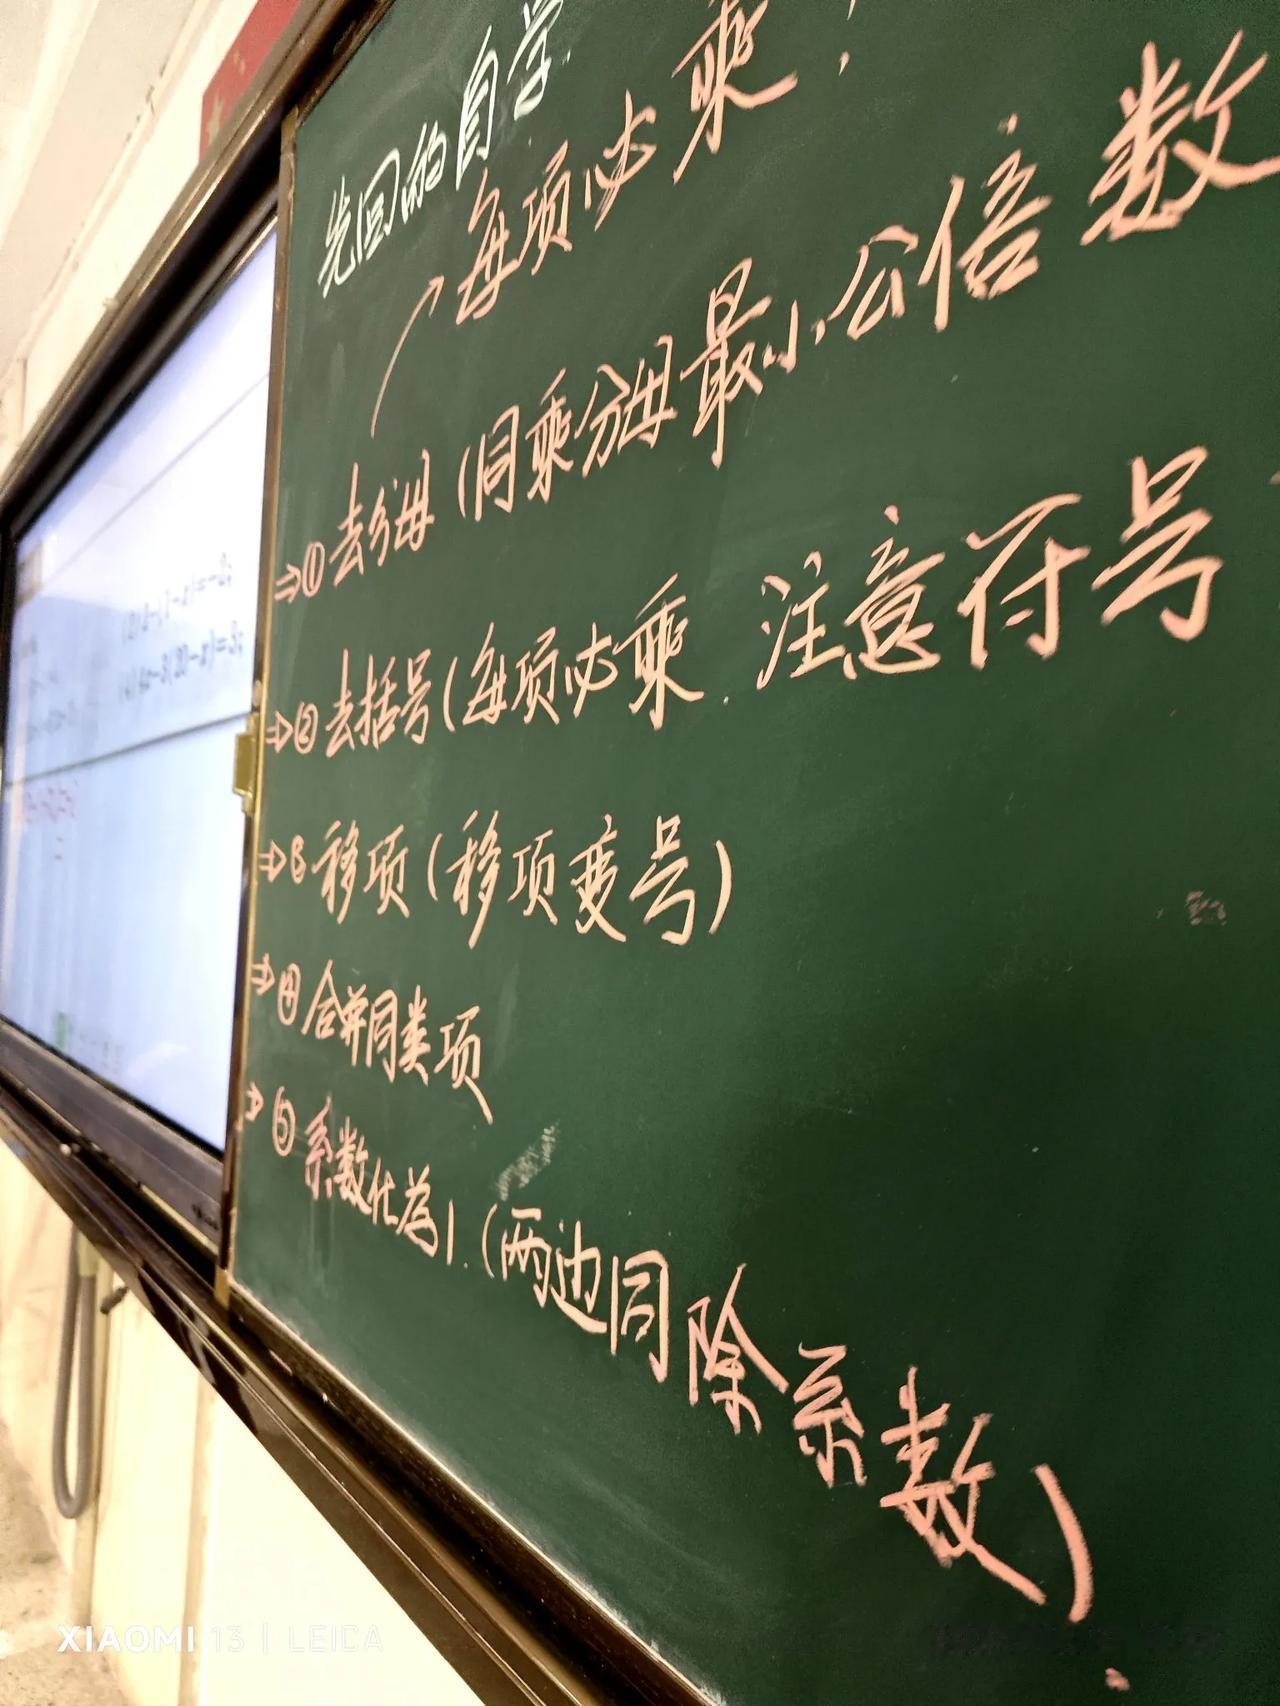 先回的自学.
每项必乘!
⇒①去分母(同乘分母最小公倍数
⇒②去括号(每项必乘.注意符号
⇒③移项(移项变号)
⇒④合并同类项
⇒⑤系数化为1.(两边同除系数)
(2)2-(1-x)=-2;
(4)4x-3(20-x)=3;
XIAOMI 13 | LEICA